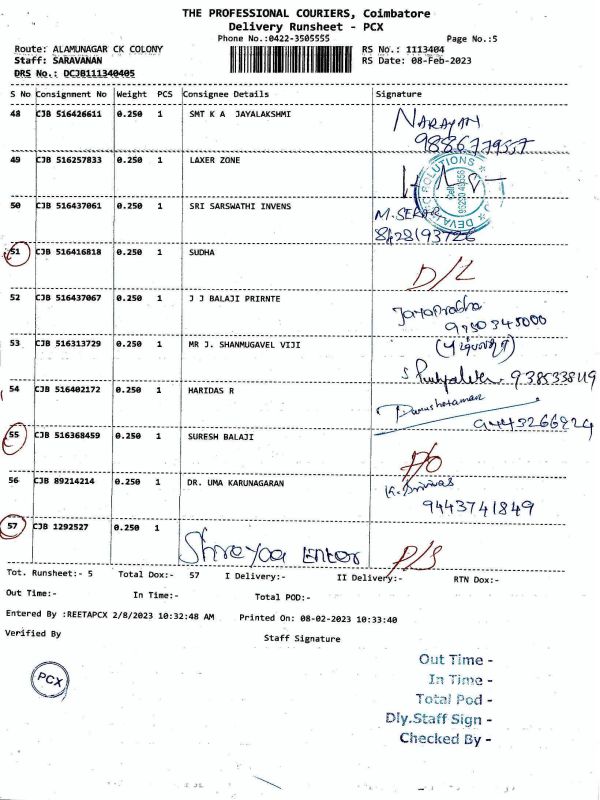 THE PROFESSIONAL COURIERS, Coimbatore
Delivery Runsheet - PCX
Phone No.:0422-3505555
Page No.:5
Route: ALAMUNAGAR CK COLONY
RS No.: 1113404
Staff: SARAVANAN
RS Date: 08-Feb-2023
DRS No.: DCJB111340405
S No Consignment No Weight PCS Consignee Details Signature
48 CJB 516426611 0.250 1 SMT K A JAYALAKSHMI
NARAYAN
9886779557
49 CJB 516257833 0.250 1 LAXER ZONE
50 CJB 516437061 0.250 1 SRI SARSWATHI INVENS
M. SEKAR
8428193726
51 CJB 516416818 0.250 1 SUDHA
D/L
52 CJB 516437067 0.250 1 J J BALAJI PRIRNTE
Jayaprabha
9750345000
53 CJB 516313729 0.250 1 MR J. SHANMUGAVEL VIJI
54 CJB 516402172 0.250 1 HARIDAS R
Purushotaman
55 CJB 516368459 0.250 1 SURESH BALAJI
56 CJB 89214214 0.250 1 DR. UMA KARUNAGARAN
K. Srinivas
9443741849
57 CJB 1292527 0.250 1
P/S
Tot. Runsheet:- 5 Total Dox:- 57 I Delivery:- II Delivery:- RTN Dox:-
Out Time:- In Time:- Total POD:-
Entered By :REETAPCX 2/8/2023 10:32:48 AM Printed On: 08-02-2023 10:33:40
Verified By Staff Signature
PCX
Out Time -
In Time -
Total Pod -
Dly.Staff Sign -
Checked By -